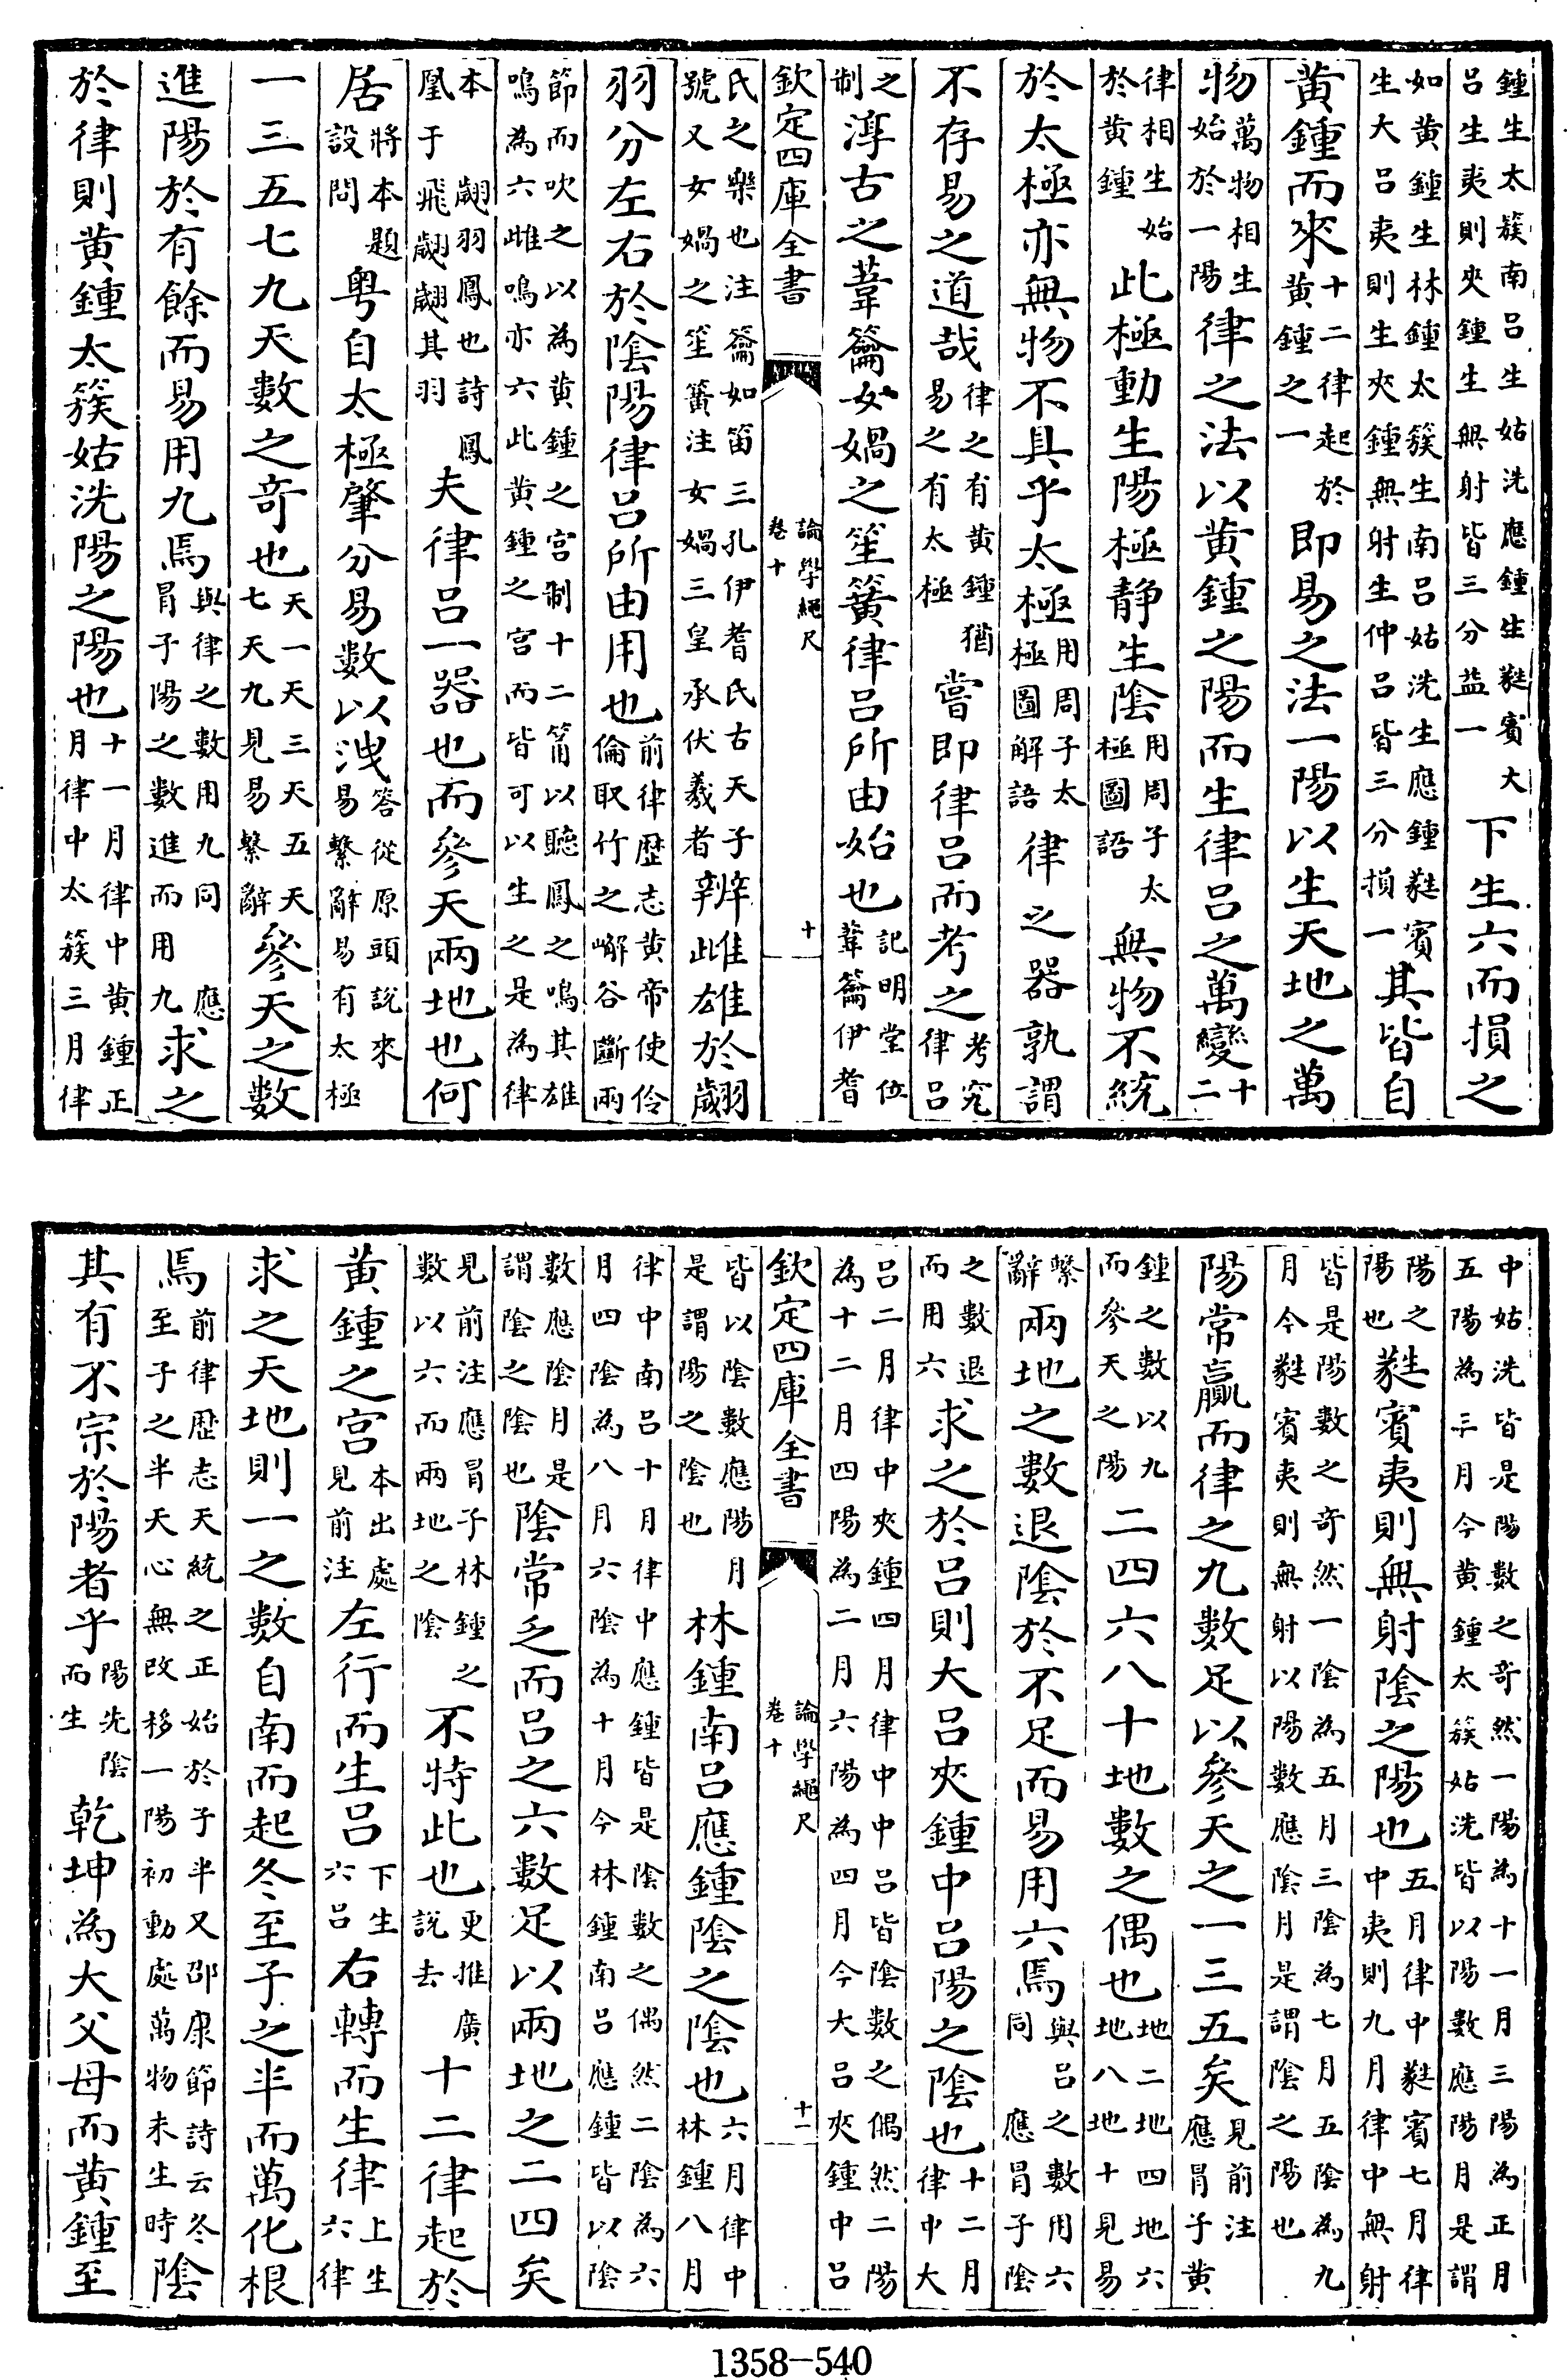 鍾生太簇南呂生姑洗應鍾生蕤賓大
呂生夷則夾鍾生無射皆三分益一
下生六而損之
如黃鍾生林鍾太簇生南呂姑洗生應鍾蕤賓
生大呂夷則生夾鍾無射生仲呂皆三分損一
其皆自
黃鍾而來
十二律起於
黃鍾之一
即易之法一陽以生天地之萬
物
萬物相生
始於一陽
律之法以黃鍾之陽而生律呂之萬變
十
二
律相生始
於黃鍾
此極動生陽極靜生陰
用周子太
極圖語
無物不統
於太極亦無物不具乎太極
用周子太
極圖解語
律之器孰謂
不存易之道哉
律之有黃鍾猶
易之有太極
嘗即律呂而考之
考究
律呂
之
制
淳古之葦籥女媧之笙簧律呂所由始也
記明堂位
葦籥伊耆
欽定四庫全書
論學繩尺
卷十
十
氏之樂也注籥如笛三孔伊耆氏古天子
號又女媧之笙簧注女媧三皇承伏羲者
辨雌雄於翽
羽分左右於陰陽律呂所由用也
前律歴志黃帝使伶
倫取竹之嶰谷斷兩
節而吹之以為黃鍾之宮制十二筩以聽鳳之鳴其雄
鳴為六雌鳴亦六此黃鍾之宮而皆可以生之是為律
本
翽羽鳳也詩鳳
凰于飛翽翽其羽
夫律呂一器也而參天兩地也何
居
將本題
設問
粵自太極肇分易數以洩
答從原頭說來
易繫辭易有太極
一三五七九天數之奇也
天一天三天五天
七天九見易繫辭
參天之數
進陽於有餘而易用九焉
與律之數用九同應
冐子陽之數進而用九
求之
於律則黃鍾太簇姑洗陽之陽也
十一月律中黃鍾正
月律中太簇三月律
中姑洗皆是陽數之奇然一陽為十一月三陽為正月
五陽為三月今黃鍾太簇姑洗皆以陽數應陽月是謂
陽之
陽也
蕤賓夷則無射陰之陽也
五月律中蕤賓七月律
中夷則九月律中無射
皆是陽數之奇然一陰為五月三陰為七月五陰為九
月今蕤賓夷則無射以陽數應陰月是謂陰之陽也
陽常贏而律之九數足以參天之一三五矣
見前注
應冐子黃
鍾之數以九
而參天之陽
二四六八十地數之偶也
地二地四地六
地八地十見易
繫
辭
兩地之數退陰於不足而易用六焉
與呂之數用六
同應冐子陰
之數退
而用六
求之於呂則大呂夾鍾中呂陽之陰也
十二月
律中大
呂二月律中夾鍾四月律中中呂皆陰數之偶然二陽
為十二月四陽為二月六陽為四月今大呂夾鍾中呂
欽定四庫全書
論學繩尺
卷十
十一
皆以陰數應陽月
是謂陽之陰也
林鍾南呂應鍾陰之陰也
六月律中
林鍾八月
律中南呂十月律中應鍾皆是陰數之偶然二陰為六
月四陰為八月六陰為十月今林鍾南呂應鍾皆以陰
數應陰月是
謂陰之陰也
陰常乏而呂之六數足以兩地之二四矣
見前注應冐子林鍾之
數以六而兩地之陰
不特此也
更推廣
說去
十二律起於
黃鍾之宮
本出處
見前注
左行而生呂
下生
六呂
右轉而生律
上生
六律
求之天地則一之數自南而起冬至子之半而萬化根
焉
前律歴志天統之正始於子半又邵康節詩云冬
至子之半天心無改移一陽初動處萬物未生時
陰
其有不宗於陽者乎
陽先陰
而生
乾坤為大父母而黃鍾至
1358-540